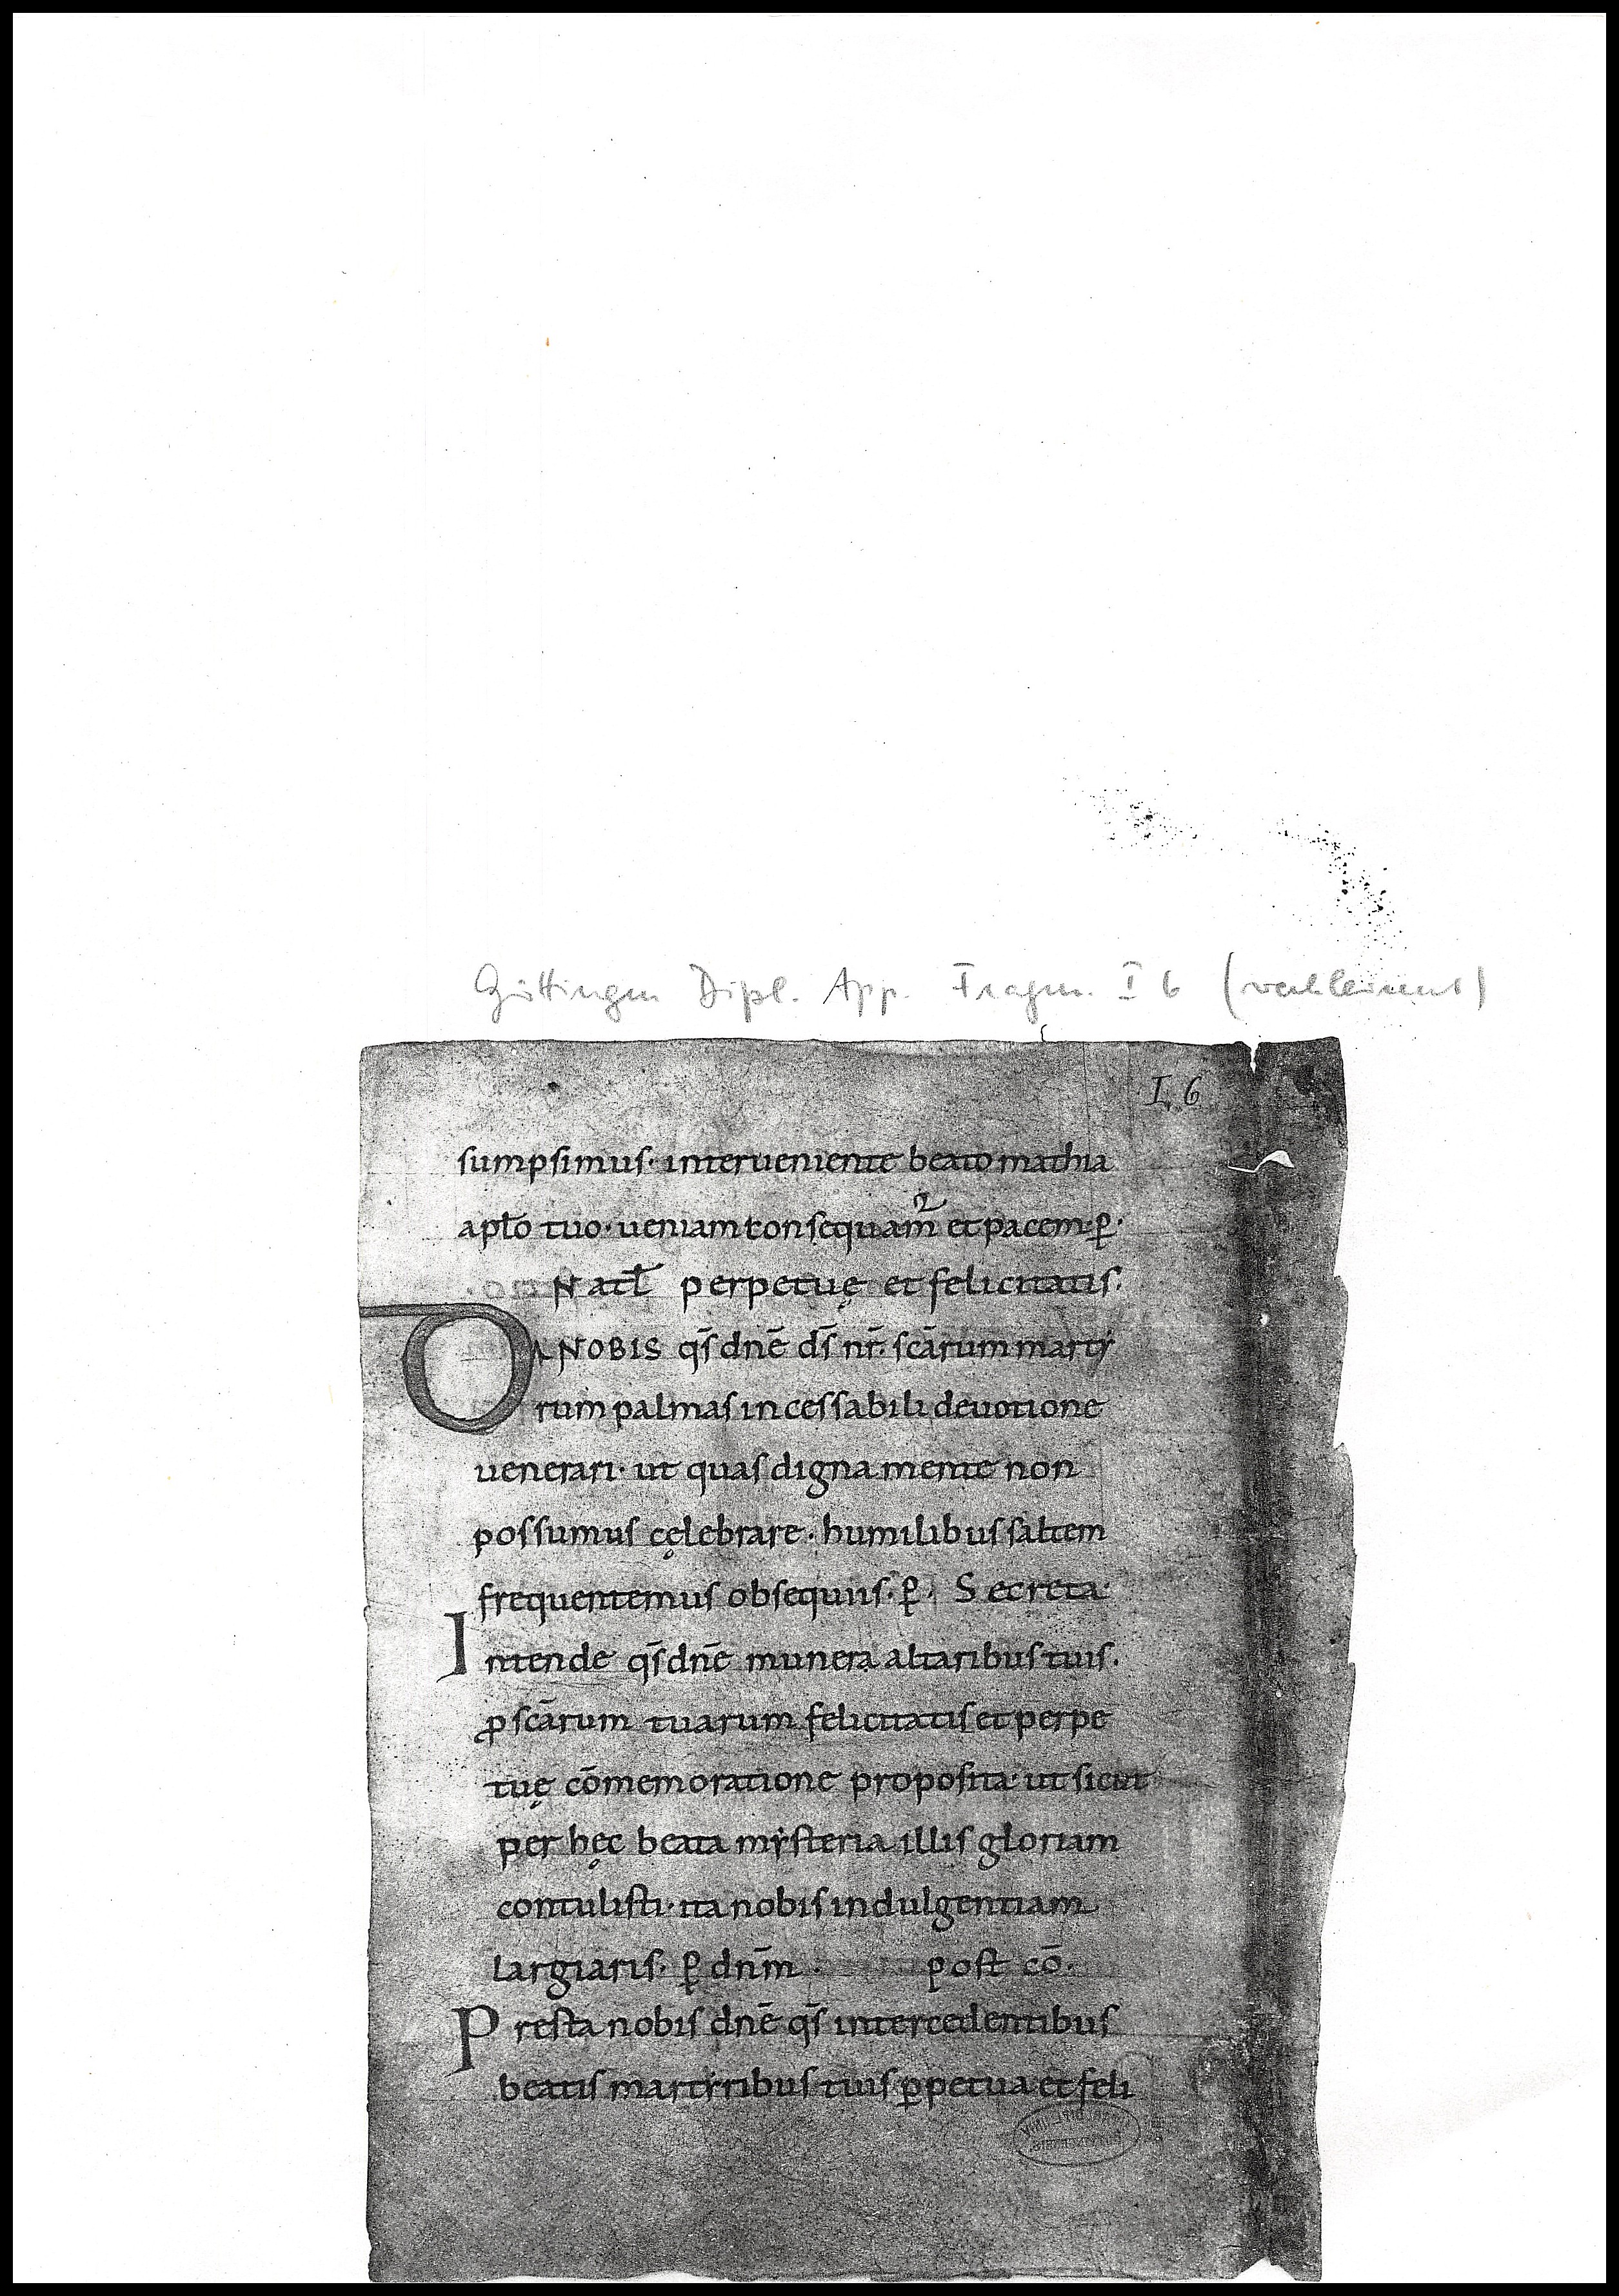 Göttingen Dipl. App. Fragm. I 6 (verkleinert)
I, 6
sumpsimus· interueniente beato mathia
apło tuo· ueniam consequam̄ et pacem· ꝑ·
Natł perpetuę et felicitatis·
DA NOBIS qs̄ dnē ds̄ nr̄· scārum marty
rum palmas incessabili deuotione
uenerari· ut quas digna mente non
possumus cęlebrare· humilibus saltem
frequentemus obsequiis· ꝑ· Secreta·
Intende qs̄ dnē munera altaribus tuis·
ꝓ scārum tuarum felicitatis et perpe
tuę cōmemoratione proposita· ut sicut
per hęc beata mẏsteria illis gloriam
contulisti· ita nobis indulgentiam
largiaris· ꝑ dnm̄· post cō·
Presta nobis dnē qs̄ intercedentibus
beatis martẏribus tuis ꝑpetua et feli